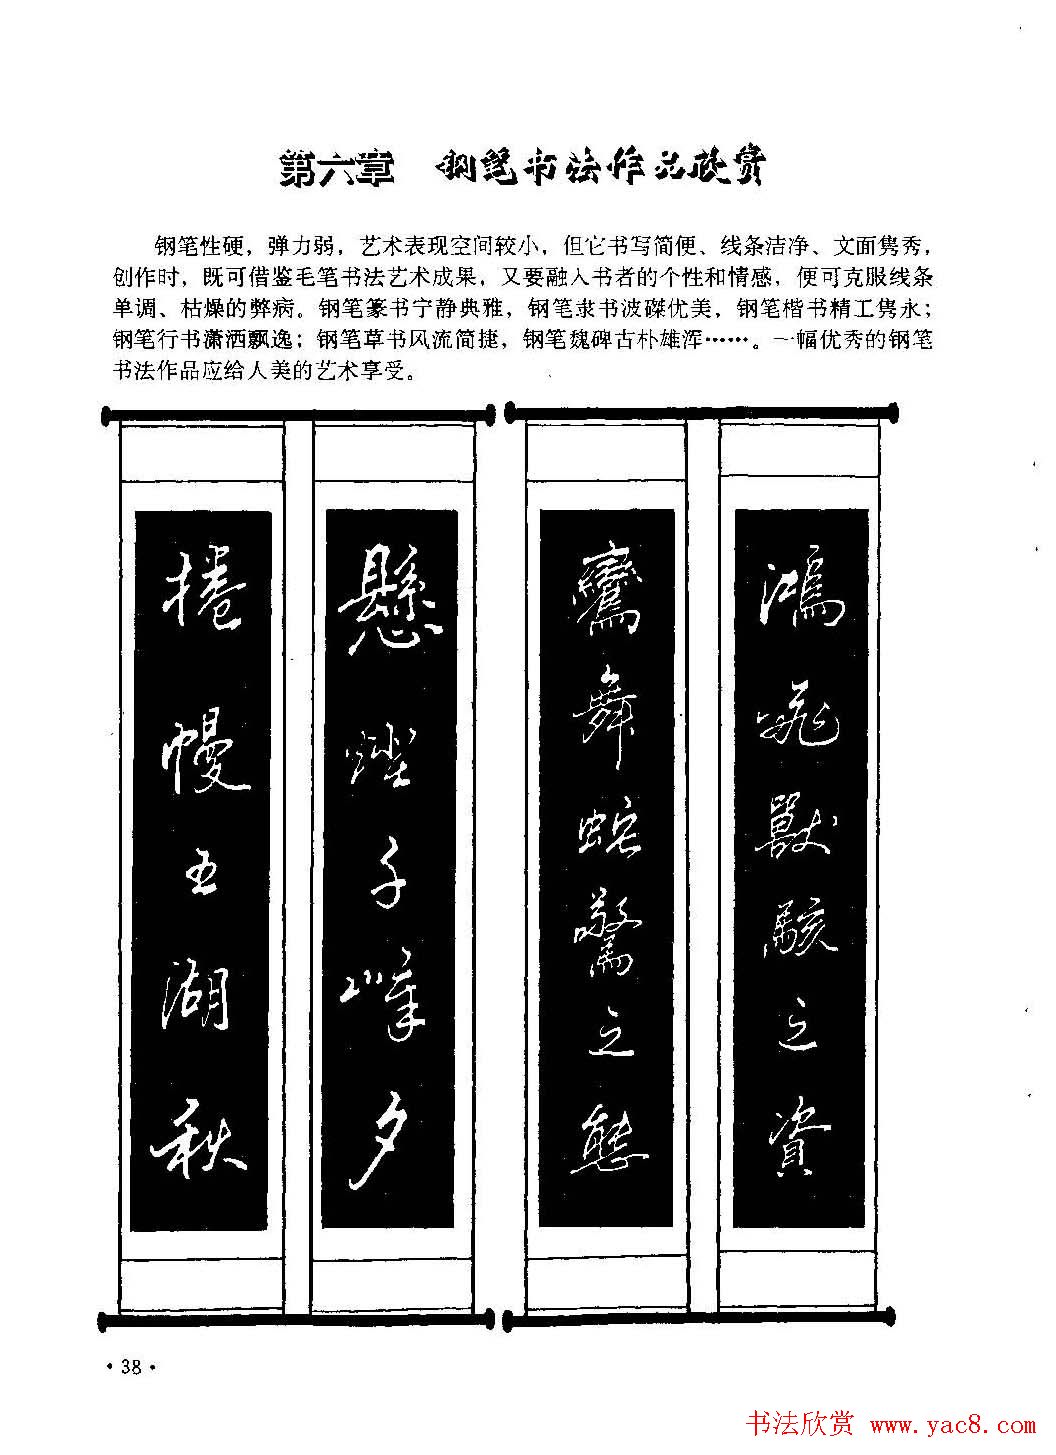 第六章 钢笔书法作品欣赏
钢笔性硬，弹力弱，艺术表现空间较小，但它书写简便、线条洁净、文面隽秀，
创作时，既可借鉴毛笔书法艺术成果，又要融入书者的个性和情感，便可克服线条
单调、枯燥的弊病。钢笔篆书宁静典雅，钢笔隶书波磔优美，钢笔楷书精工隽永；
钢笔行书潇洒飘逸；钢笔草书风流简捷，钢笔魏碑古朴雄浑……。一幅优秀的钢笔
书法作品应给人美的艺术享受。
鴻飛獸駭之資
鸞舞蛇驚之態
懸燈千嶂夕
捲幔五湖秋
·38·
书法欣赏 www.yac8.com